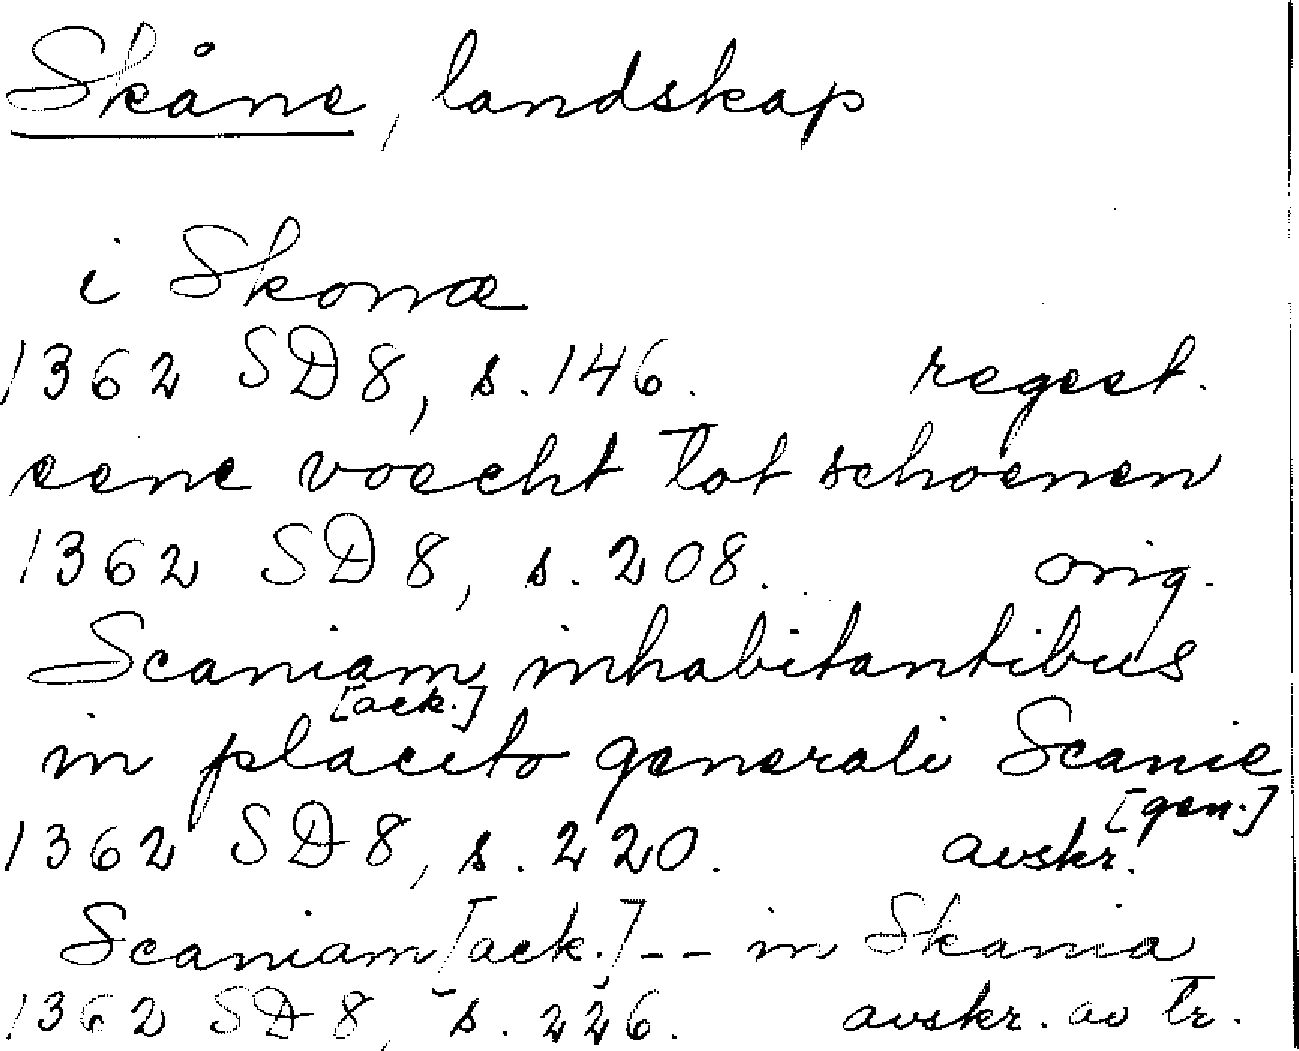 Skåne, landskap
i Skonæ
1362 SD 8, s. 146. regest.
eene voecht tot schoenen
1362 SD 8, s. 208. orig.
Scaniam [ack.] inhabitantibus
in placito generali Scanie [gen.]
1362 SD 8, s. 220. avskr.
Scaniam [ack.] -- in Skania
1362 SD 8, s. 226. avskr. av tr.